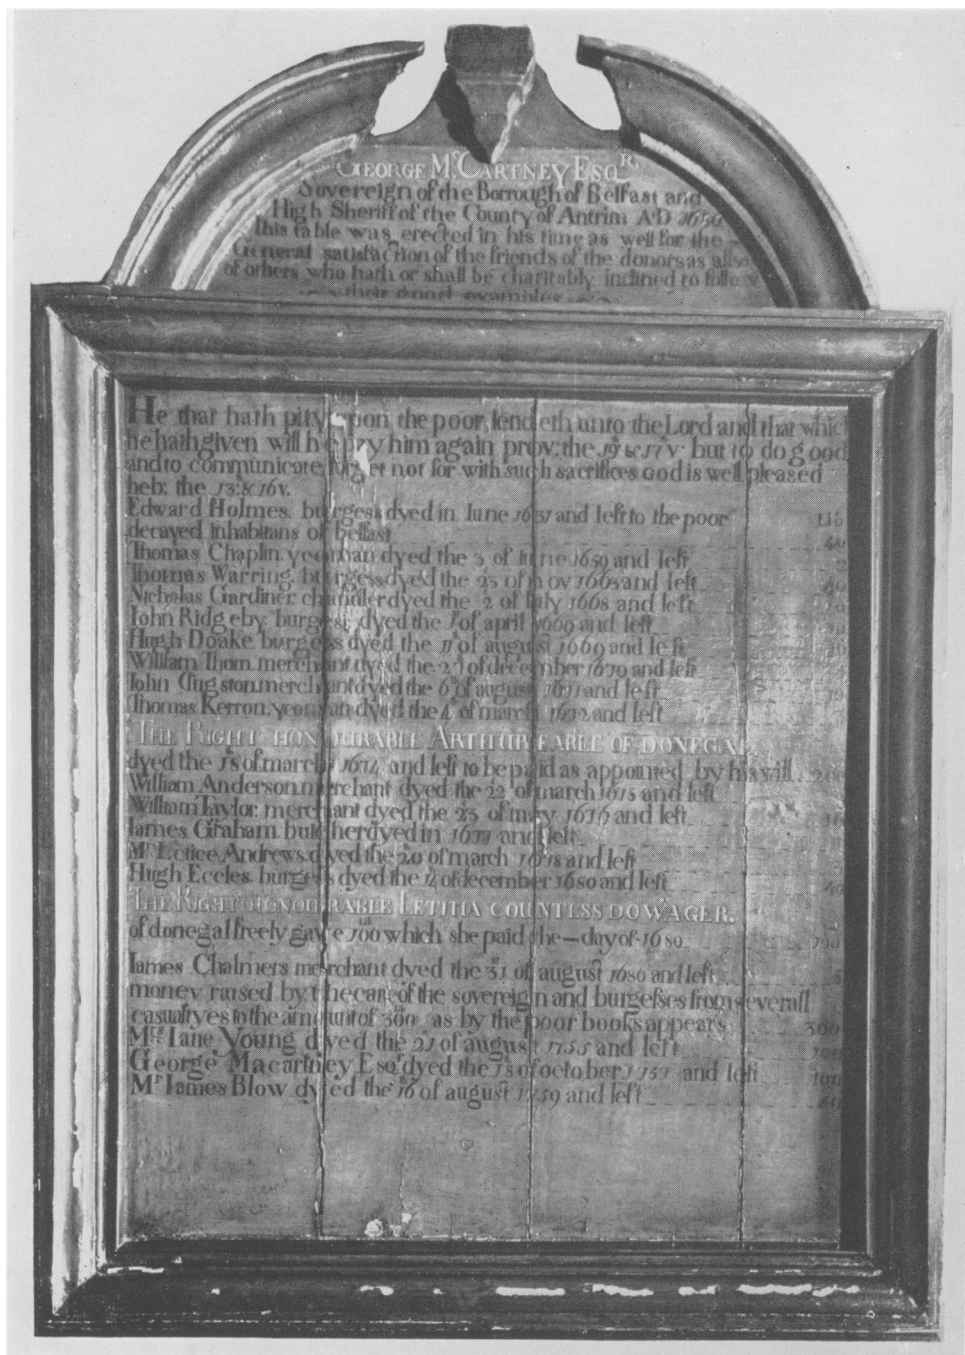 GEORGE McCARTNEY ESQR.
Sovereign of the Borrough of Belfast and
High Sheriff of the County of Antrim A·D
this table was erected in his time as well for the
General satisfaction of the friends of the donors as allso
of others who hath or shall be charitably inclined to follow
their good examples
He that hath pity upon the poor, lendeth unto the Lord and that which
he hath given will he pay him again prov: the 19 & 17 v· but to do good
and to communicate forget not for with such sacrifices God is well pleased
heb: the 13 & 16 v.
Edward Holmes burgess dyed in Iune 1631 and left to the poor
decayed inhabitans of belfast 40
Thomas Chaplin yeoman dyed the 3 of Iune 1659 and left
Thomas Warring burgess dyed the 23 of nov 1665 and left
Nicholas Gardiner chandler dyed the 2 of Iuly 1668 and left
Iohn Ridgeby burgess dyed the of april 1669 and left
Hugh Doake burgess dyed the 11 of august 1669 and left
William Thom merchant dyed the of december 1670 and left
Iohn Clugston merchant dyed the 6 of august and left
Thomas Kerron yeoman dyed the 4 of march and left
THE RIGHT HONOURABLE ARTHUR EARLE OF DONEGAL
dyed the of march 1674 and left to be paid as appointed by his will 200
William Anderson merchant dyed the 22 of march 1675 and left
William Taylor merchant dyed the 23 of may 1676 and left
Iames Graham butcher dyed in and left
Mrs Lettice Andrews dyed the 20 of march 1678 and left
Hugh Eccles burgess dyed the 14 of december 1680 and left
THE RIGHT HONOURABLE LETITIA COUNTESS DOWAGER.
of donegal freely gave 100 which she paid the — day of 1680.
Iames Chalmers merchant dyed the 31 of august 1680 and left
money raised by the care of the sovereign and burgesses from severall
casualtyes to the amount of 300 as by the poor books appears 300
Mrs Iane Young dyed the 21 of august 1755 and left
George Macartney Esqr dyed the of october 1757 and left
Mr Iames Blow dyed the 16 of august 1759 and left